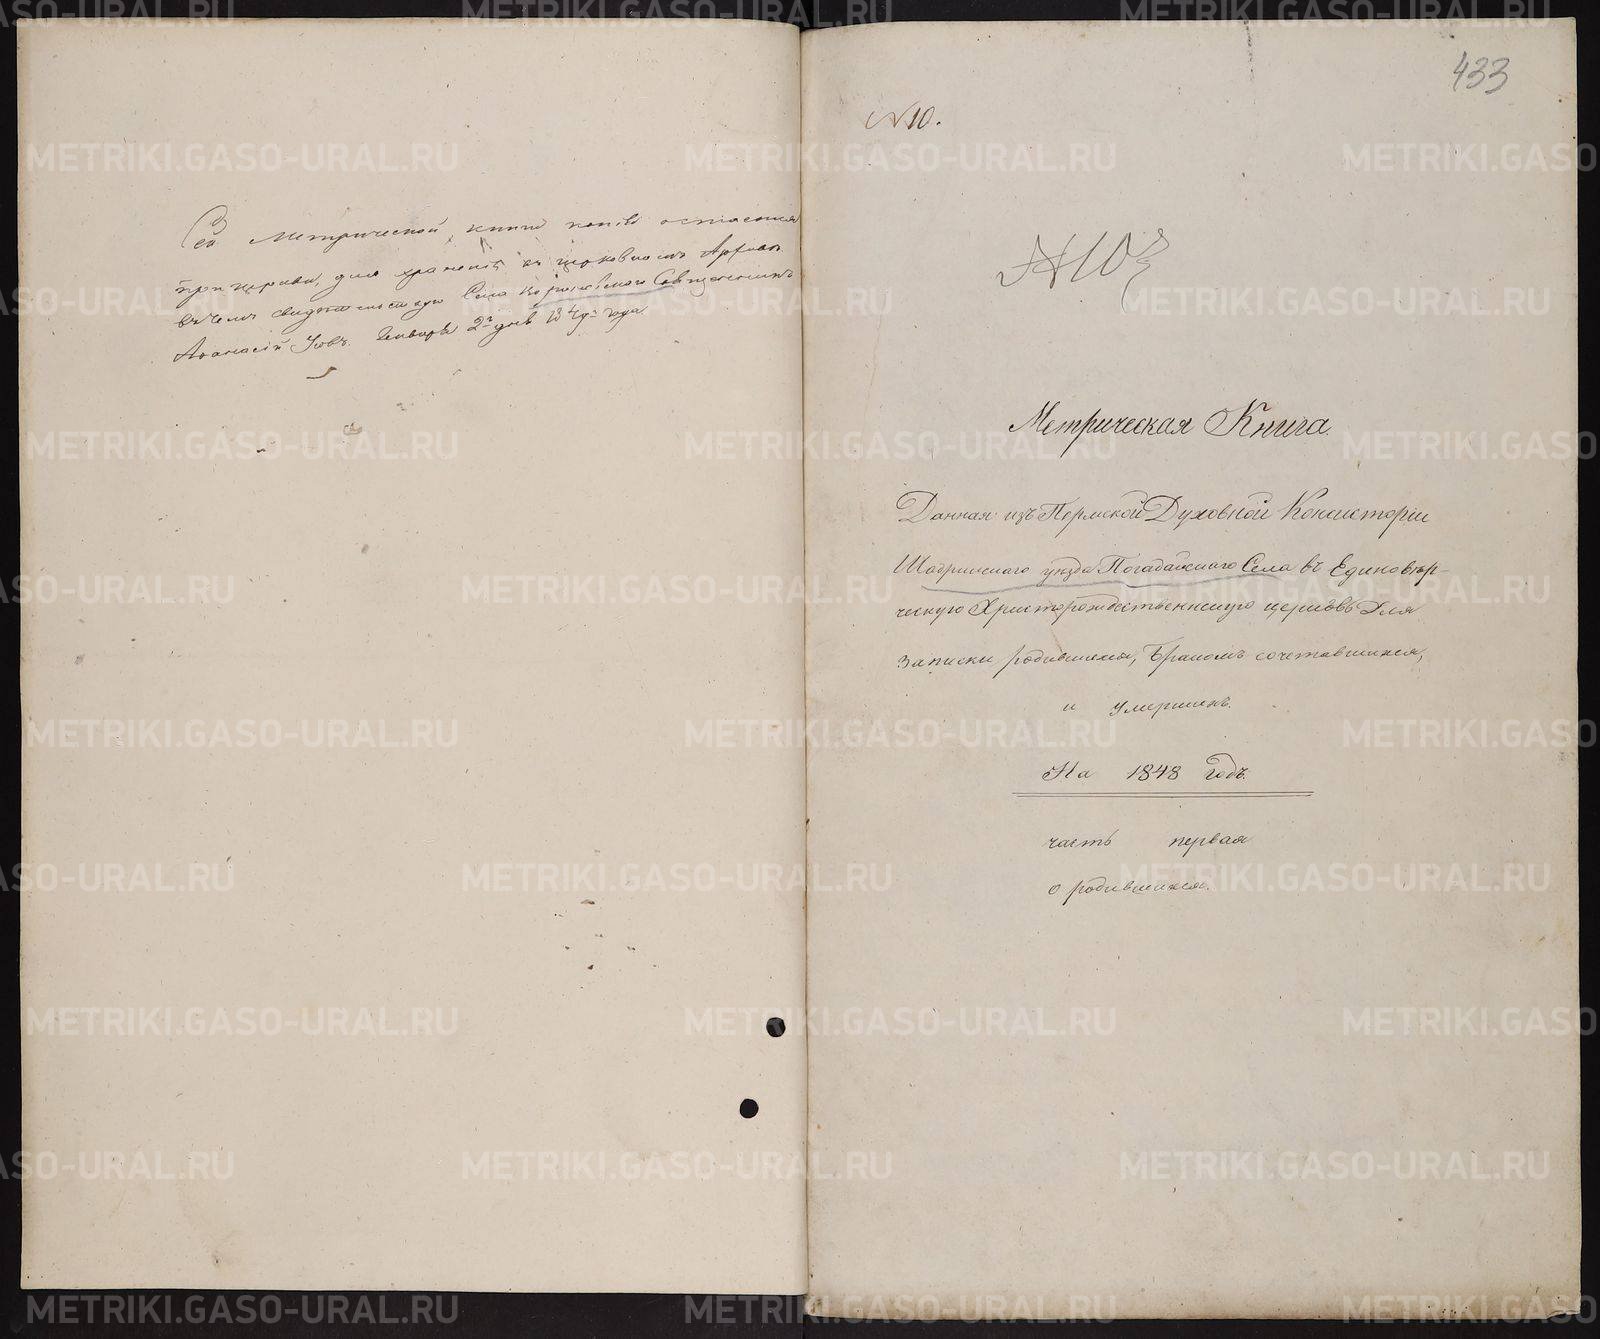 Сей Метрической книги копія оставлена
при церкви, для храненія въ церковномъ Архивѣ
въ чемъ свидѣтельствую Села Священникъ
Аѳанасій Января 2го дня года
433
N 10.
№ 10й
Метрическая Книга.
Данная изъ Пермской Духовной Консисторіи
Шадринскаго уѣзда Погадайскаго Села въ Единовѣр-
ческую Христорождественнскую церковь для
записки родившихся, бракомъ сочетавшихся,
и умершихъ.
На 1848 годъ.
часть первая
о родившихся.
METRIKI.GASO-URAL.RU